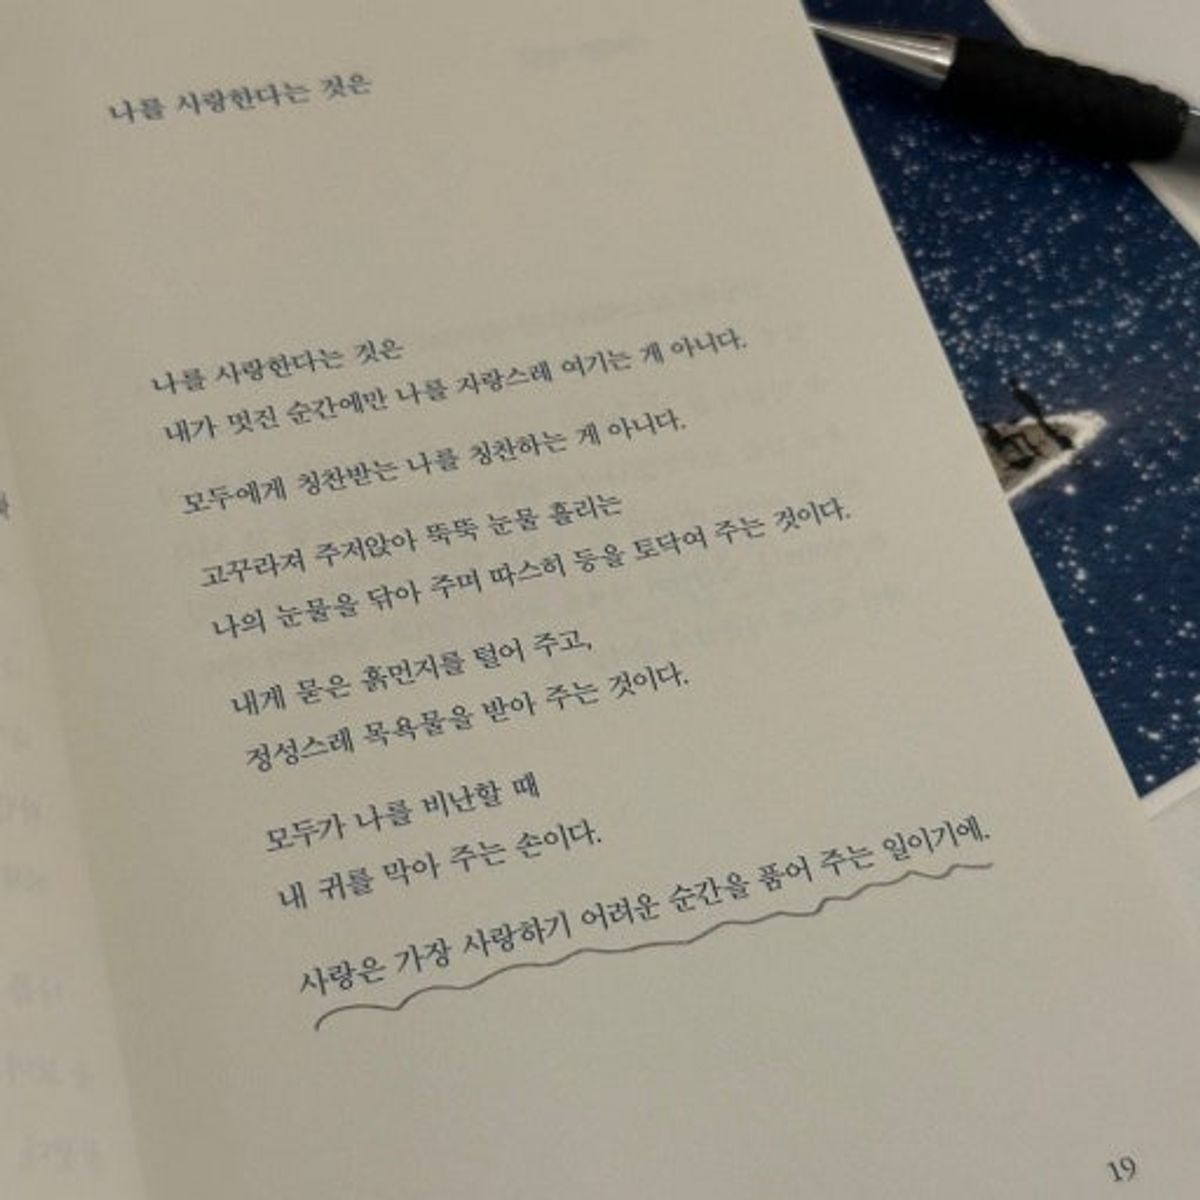 나를 사랑한다는 것은
나를 사랑한다는 것은
내가 멋진 순간에만 나를 자랑스레 여기는 게 아니다.
모두에게 칭찬받는 나를 칭찬하는 게 아니다.
고꾸라져 주저앉아 뚝뚝 눈물 흘리는
나의 눈물을 닦아 주며 따스히 등을 토닥여 주는 것이다.
내게 묻은 흙먼지를 털어 주고,
정성스레 목욕물을 받아 주는 것이다.
모두가 나를 비난할 때
내 귀를 막아 주는 손이다.
사랑은 가장 사랑하기 어려운 순간을 품어 주는 일이기에.
19